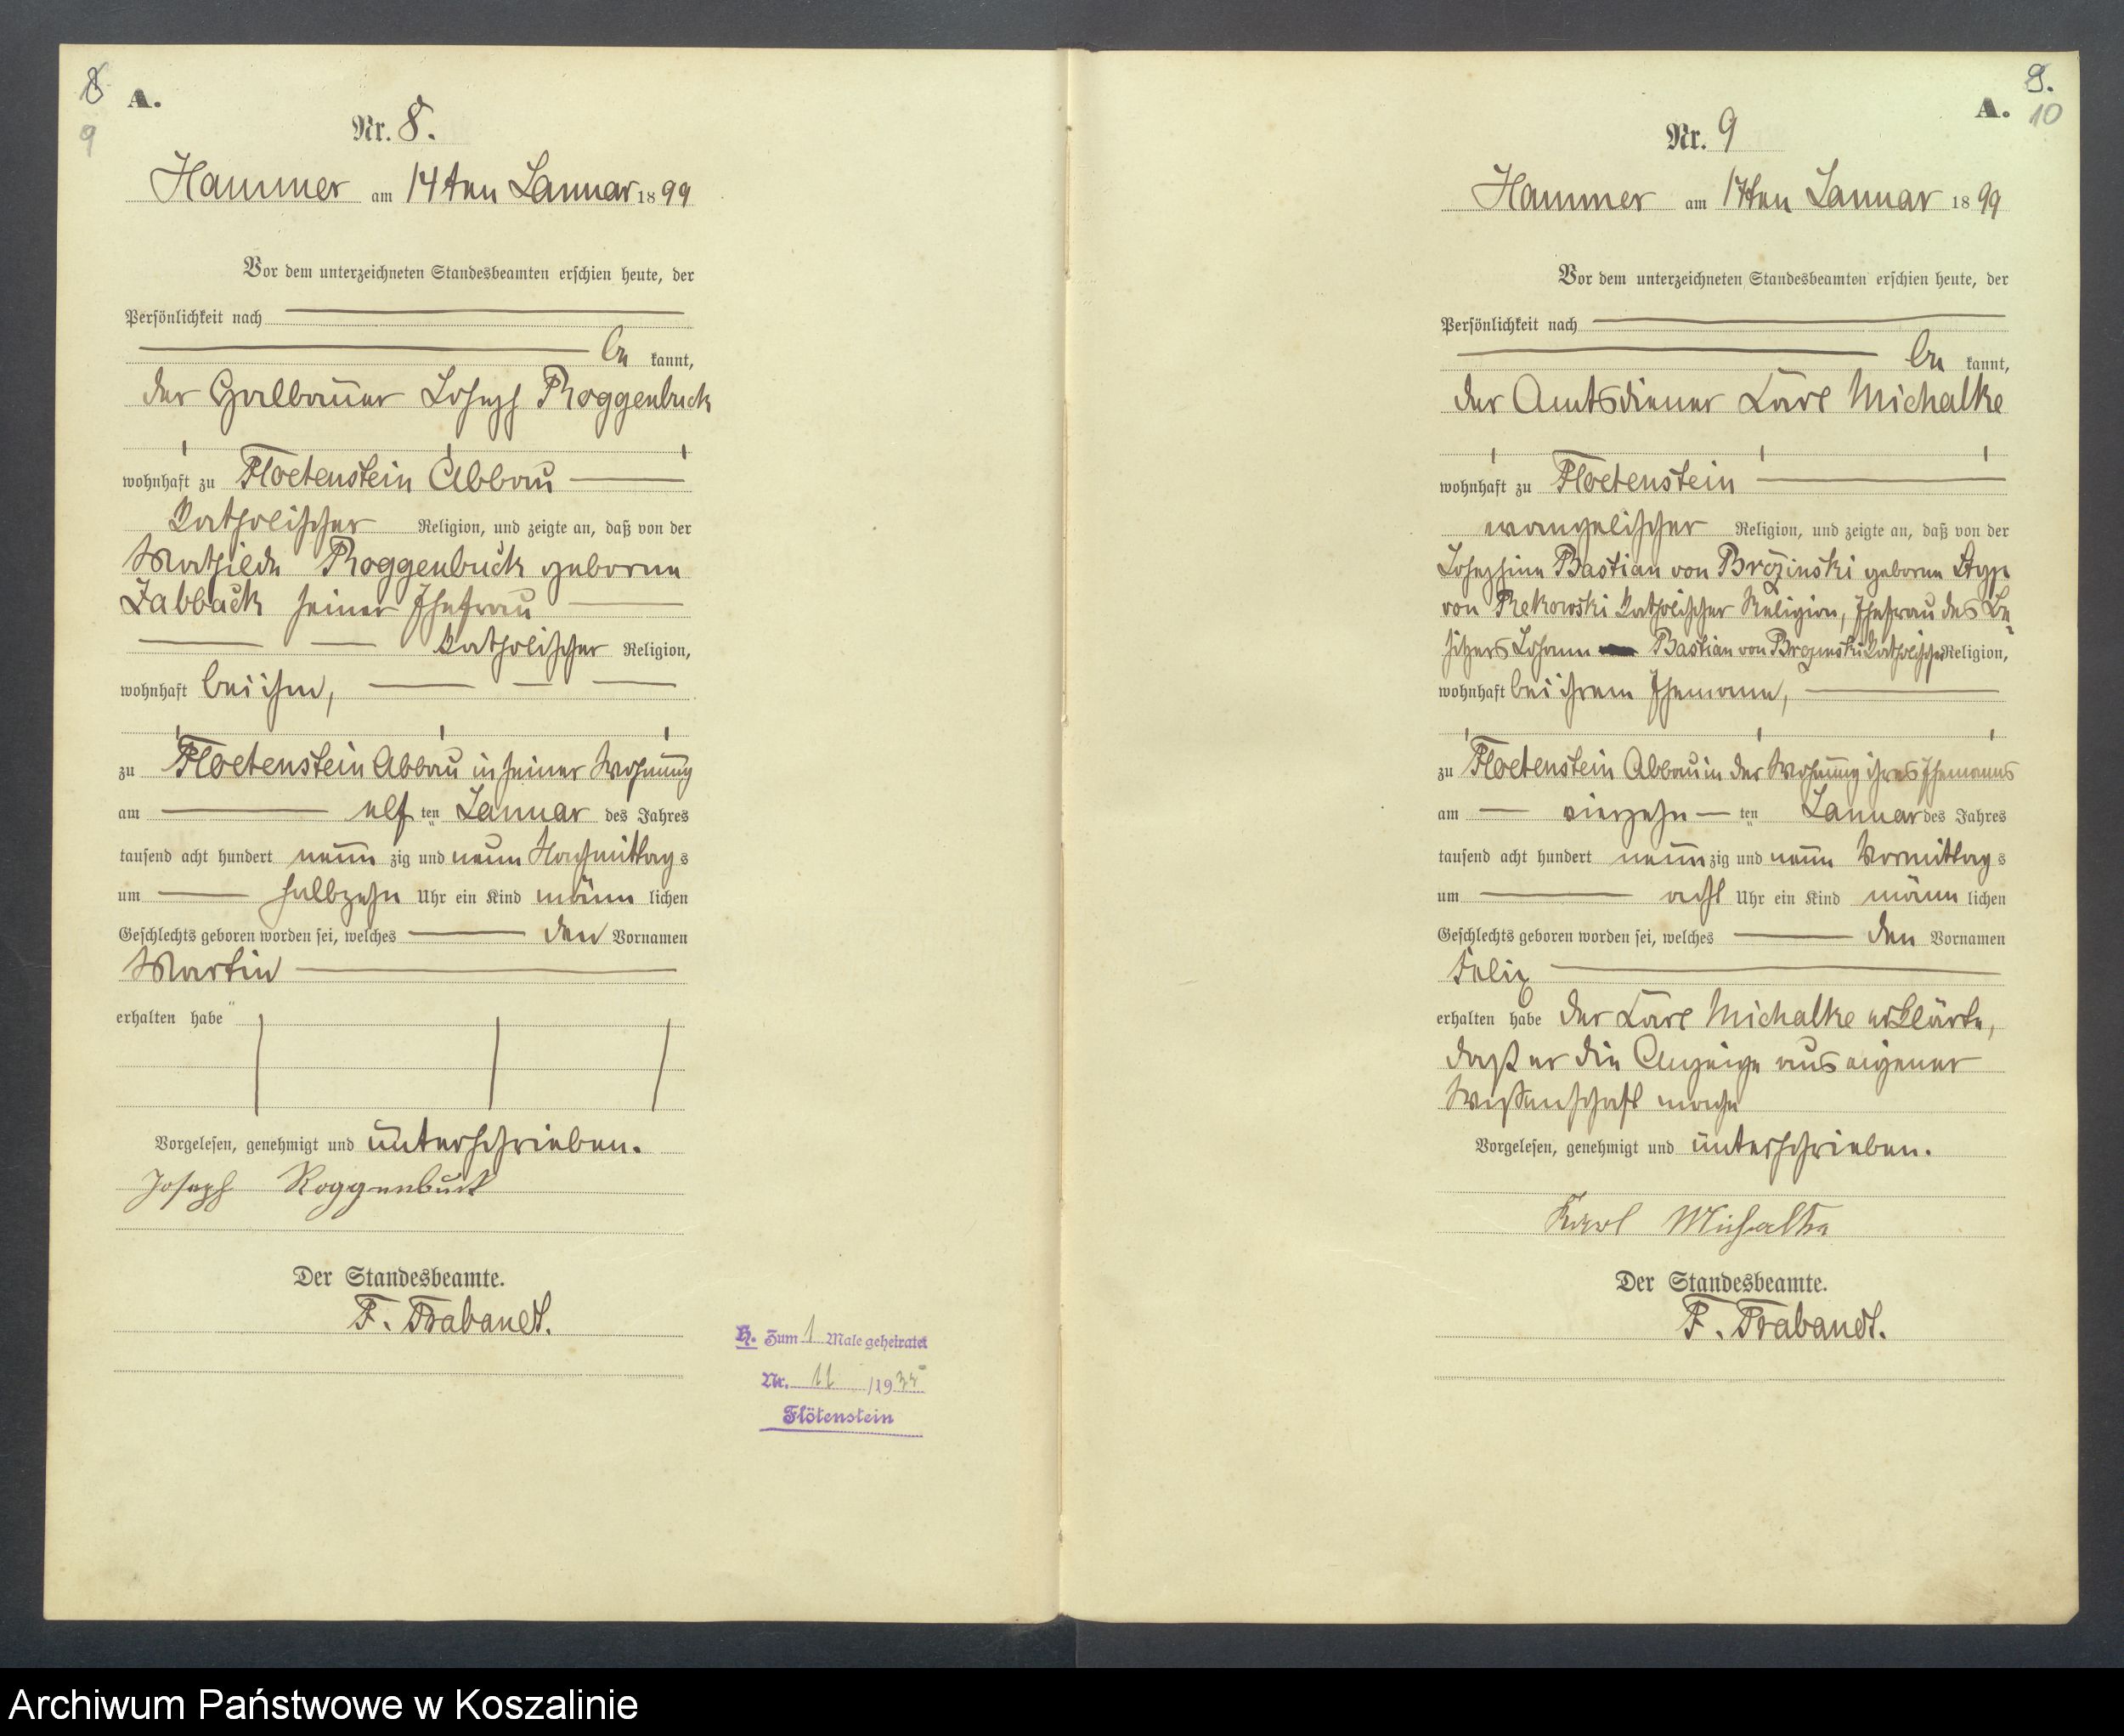 8
9
A.
Nr. 8.
Hammer am 14ten Januar 1899
Vor dem unterzeichneten Standesbeamten erschien heute, der
Persönlichkeit nach
be kannt,
der Halbbauer Joseph Roggenbuck
wohnhaft zu Floetenstein Abbau
katholischer Religion, und zeigte an, daß von der
Mathilde Roggenbuck geborene
Zabback seiner Ehefrau
katholischer Religion,
wohnhaft bei ihm,
zu Floetenstein Abbau in seiner Wohnung
am elf ten Januar des Jahres
tausend acht hundert neun zig und neun Nachmittag s
um halbzehn Uhr ein Kind männ lichen
Geschlechts geboren worden sei, welches den Vornamen
Martin
erhalten habe
Vorgelesen, genehmigt und unterschrieben.
Joseph Roggenbuck
Der Standesbeamte.
F. Brabandt.
H. Zum 1 Male geheiratet
Nr. 11 /1935
Flötenstein
9.
A. 10
Nr. 9
Hammer am 17ten Januar 1899
Vor dem unterzeichneten Standesbeamten erschien heute, der
Persönlichkeit nach
be kannt,
der Amtsdiener Karl Michalke
wohnhaft zu Floetenstein
evangelischer Religion, und zeigte an, daß von der
Josephine Bastian von Brozinski geborene Styp
von Rekowski katholischer Religion, Ehefrau des Be-
sitzers Johann Bastian von Brozinski katholischer Religion,
wohnhaft bei ihrem Ehemanne,
zu Floetenstein Abbau in der Wohnung ihres Ehemanns
am vierzehn ten Januar des Jahres
tausend acht hundert neun zig und neun Vormittag s
um acht Uhr ein Kind männ lichen
Geschlechts geboren worden sei, welches den Vornamen
Felix
erhalten habe der Karl Michalke erklärte,
daß er die Anzeige aus eigener
Wissenschaft mache
Vorgelesen, genehmigt und unterschrieben.
Karl Michalke
Der Standesbeamte.
F. Brabandt.
Archiwum Państwowe w Koszalinie